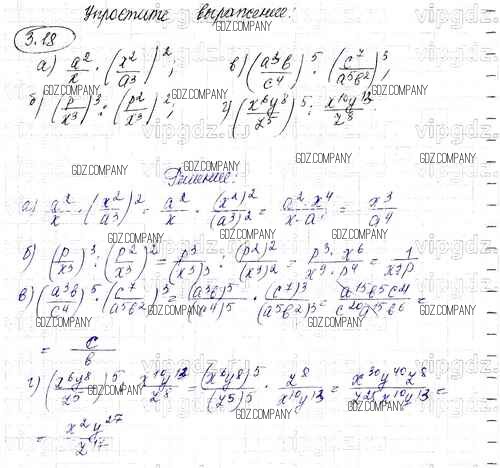 Упростите выражение:
3.18
а) a²/x · (x²/a³)²; в) (a³b/c⁴)⁵ · (c⁷/a⁵b²)³;
б) (p/x³)³ : (p²/x³)²; г) (x⁶y⁸/z⁵)⁵ : x¹⁰y¹³/z⁸
Решение:
а) a²/x · (x²/a³)² = a²/x · (x²)²/(a³)² = a²·x⁴/x·a⁶ = x³/a⁴
б) (p/x³)³ : (p²/x³)² = p³/(x³)³ : (p²)²/(x³)² = p³·x⁶/x⁹·p⁴ = 1/x³p
в) (a³b/c⁴)⁵ · (c⁷/a⁵b²)³ = (a³b)⁵/(c⁴)⁵ · (c⁷)³/(a⁵b²)³ = a¹⁵b⁵c²¹/c²⁰a¹⁵b⁶ =
= c/b
г) (x⁶y⁸/z⁵)⁵ : x¹⁰y¹³/z⁸ = (x⁶y⁸)⁵/(z⁵)⁵ · z⁸/x¹⁰y¹³ = x³⁰y⁴⁰z⁸/z²⁵x¹⁰y¹³ =
= x²y²⁷/z¹⁷
GDZ.COMPANY
vipgdz.ru